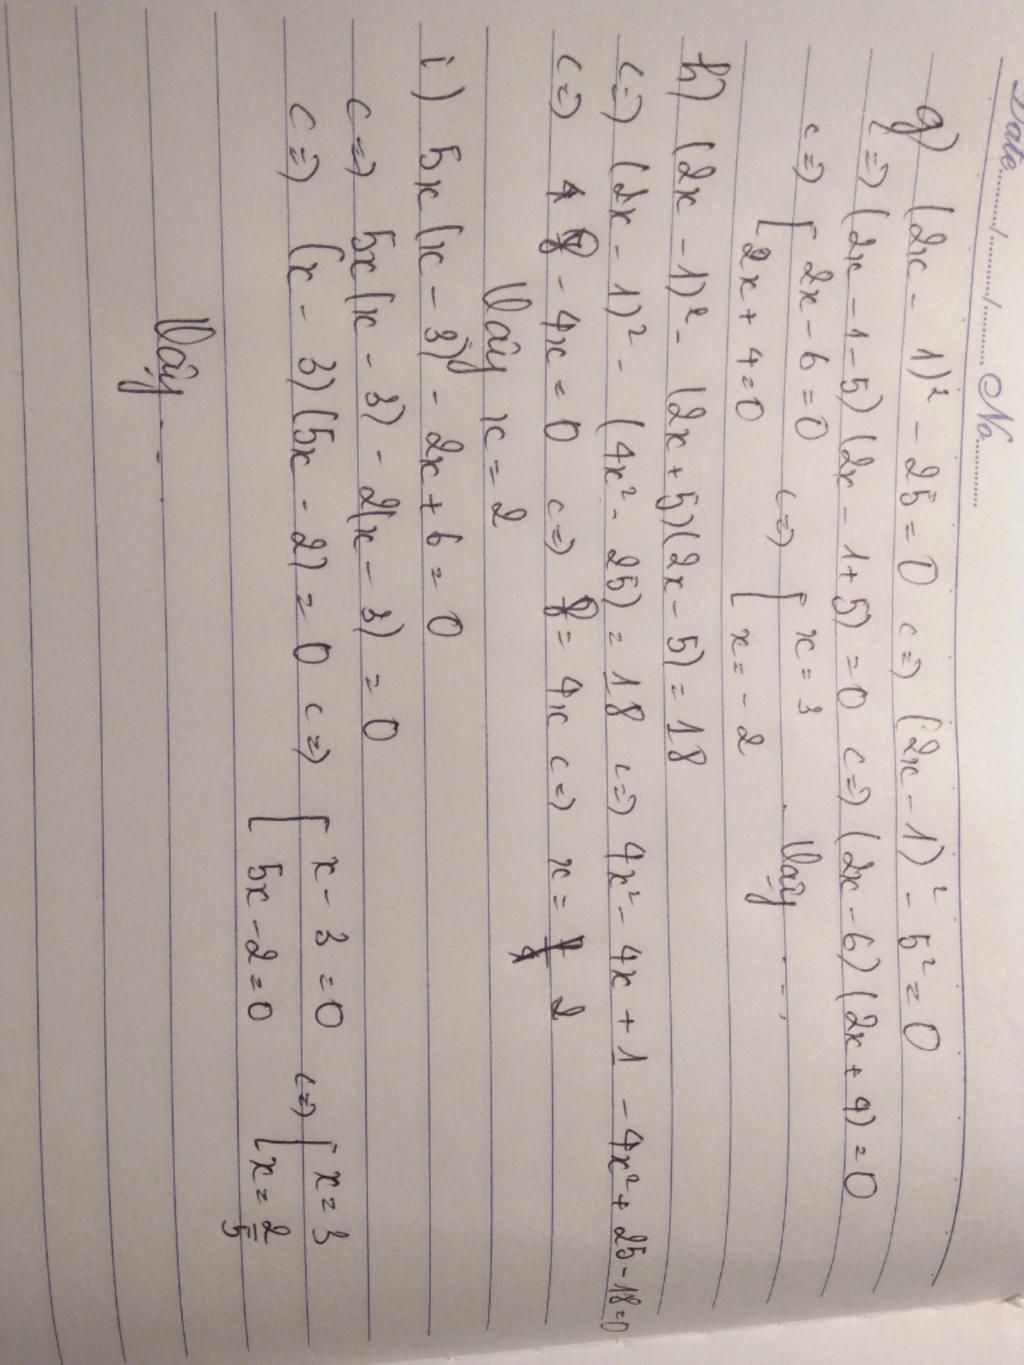 Date ....../....../...... No..........
g) (2x - 1)² - 25 = 0 <=> (2x - 1)² - 5² = 0
<=> (2x - 1 - 5)(2x - 1 + 5) = 0 <=> (2x - 6)(2x + 4) = 0
<=> [ 2x - 6 = 0 <=> [ x = 3
2x + 4 = 0 x = -2 Vậy ....
h) (2x - 1)² - (2x + 5)(2x - 5) = 18
<=> (2x - 1)² - (4x² - 25) = 18 <=> 4x² - 4x + 1 - 4x² + 25 - 18 = 0
<=> 8 - 4x = 0 <=> 8 = 4x <=> x = 2
Vậy x = 2
i) 5x(x - 3) - 2x + 6 = 0
<=> 5x(x - 3) - 2(x - 3) = 0
<=> (x - 3)(5x - 2) = 0 <=> [ x - 3 = 0 <=> [ x = 3
5x - 2 = 0 x = 2/5
Vậy ...